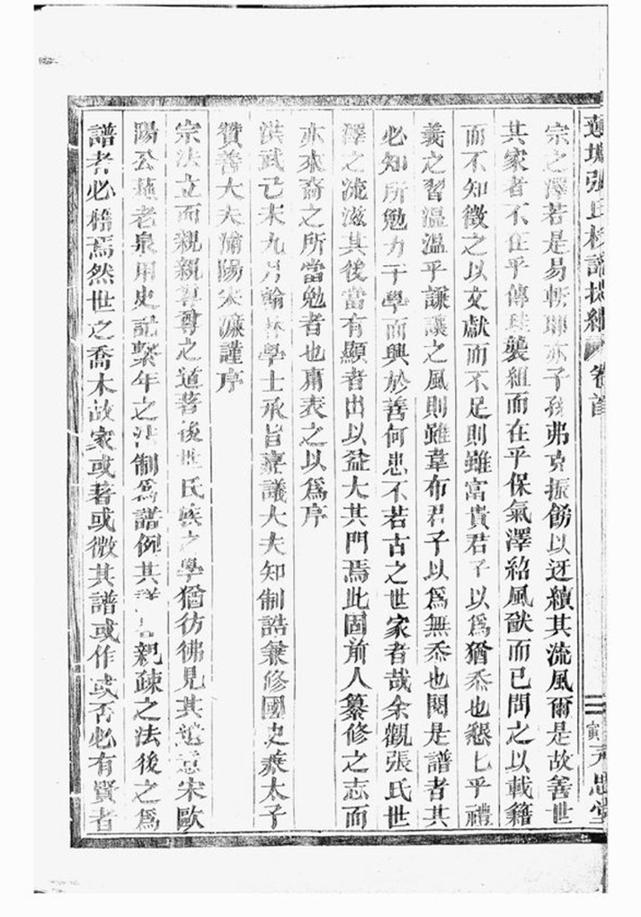 蓮塘張氏校譜探細 卷首
宗之澤若是易斬耶亦子孫弗克振飭以迓續其流風爾是故善世
其家者不在乎傳珪襲組而在乎保氣澤紹風猷而已問之以載籍
而不知徵之以文獻而不足則雖富貴君子以爲猶忝也懇七乎禮
義之習溫溫乎謙讓之風則雖韋布君子以爲無忝也閱是譜者其
必知所勉力于學而興於善何患不若古之世家者哉余觀張氏世
澤之流滋其後當有顯者出以益大其門焉此固前人纂修之志而
亦來裔之所當勉者也庸表之以爲序
洪武己未九月翰林學士承旨嘉議大夫知制誥兼修國史兼太子
贊善大夫浦陽宋濂謹序
宗法立而親親尊尊之道著後世氏族之學猶彷彿見其遺意宋歐
陽公蘇老泉用史記繫年之法制爲譜例其詳親疎之法後之爲
譜者必楷焉然世之喬木故家或著或微其譜或作或否必有賢者
二 敦忠堂